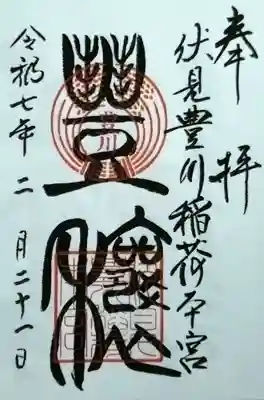 奉拝
伏見豊川稲荷本宮
豊
令和七年二月二十一日